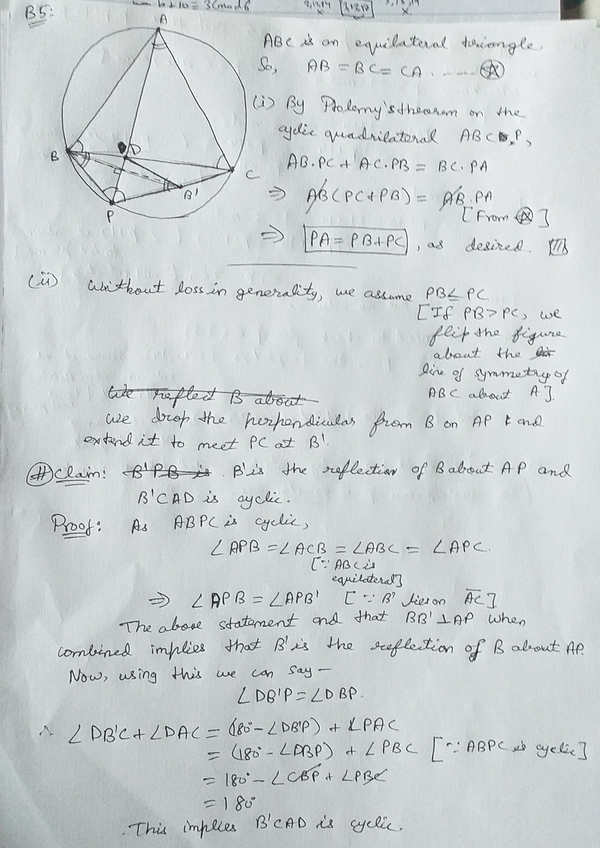 B5:
A
B
D
C
B'
P
ABC is an equilateral triangle.
So, AB = BC = CA. ---- Ⓐ
(i) By Ptolemy's theorem on the
cyclic quadrilateral ABCP,
AB.PC + AC.PB = BC.PA
⇒ AB(PC+PB) = AB.PA
[From Ⓐ]
⇒ PA = PB+PC, as desired.
(ii) Without loss in generality, we assume PB≤PC
[If PB>PC, we
flip the figure
about the
line of symmetry of
ABC about A].
We reflect B about
We drop the perpendicular from B on AP and
extend it to meet PC at B'.
(#) Claim: B'PB is B' is the reflection of B about AP and
B'CAD is cyclic.
Proof: As ABPC is cyclic,
∠APB = ∠ACB = ∠ABC = ∠APC.
[∵ ABC is
equilateral]
⇒ ∠APB = ∠APB' [∵ B' lies on AC]
The above statement and that BB' ⊥ AP when
combined implies that B' is the reflection of B about AP.
Now, using this we can say —
∠DB'P = ∠DBP.
∴ ∠DB'C + ∠DAC = (180° - ∠DB'P) + ∠PAC
= (180° - ∠DBP) + ∠PBC [∵ ABPC is cyclic]
= 180° - ∠CBP + ∠PBC
= 180°
This implies B'CAD is cyclic.